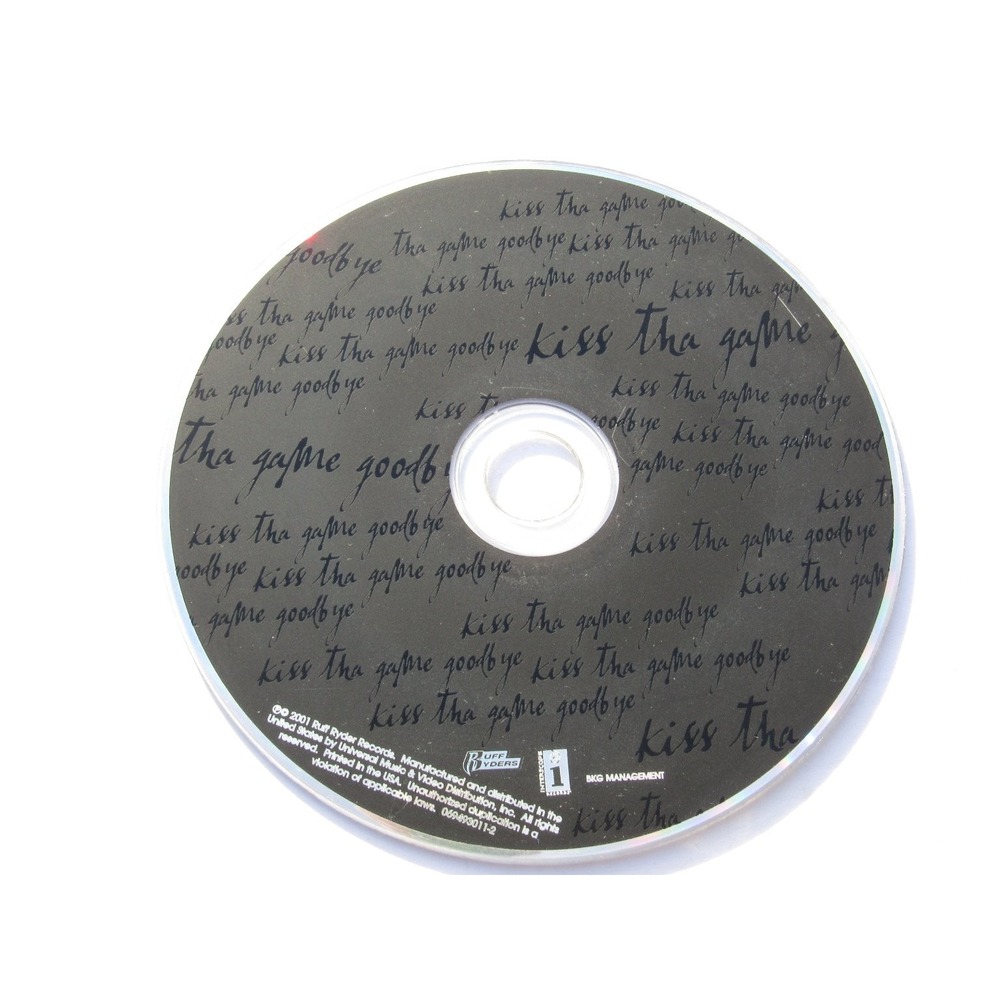 kiss tha game
tha game goodbye kiss tha game
goodbye
kiss tha game goodbye
kiss tha
tha game goodbye
kiss tha game
goodbye
kiss tha game goodbye
tha game goodbye
kiss tha game goodbye
kiss
goodbye
kiss tha game
tha game
game goodbye
kiss
kiss tha game goodbye
kiss tha game goodbye
kiss tha game goodbye
kiss tha
game goodbye
kiss tha game goodbye
kiss tha game goodbye kiss tha game goodbye
kiss tha game goodbye
kiss tha
℗© 2001 Ruff Ryder Records. Manufactured and distributed in the
United States by Universal Music & Video Distribution, Inc. All rights
reserved. Printed in the USA. Unauthorized duplication is a
violation of applicable laws. 069493011-2
RUFF
RYDERS
INTERSCOPE
RECORDS
BKG MANAGEMENT
kiss tha